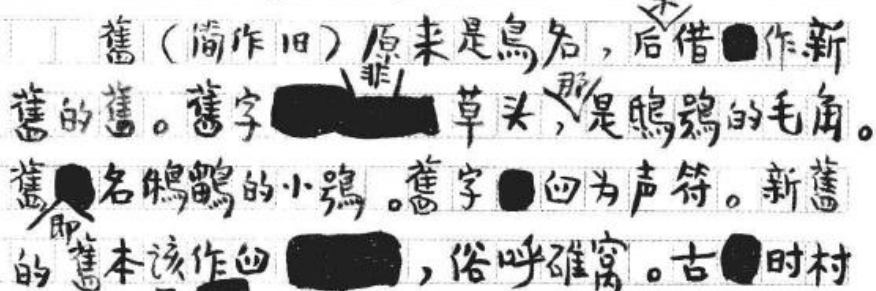 舊（简作旧）原来是鳥名，后来借作新
舊的舊。舊字非草头，那是鴟鴞的毛角。
舊即名鵂鶹的小鴞。舊字臼为声符。新舊
的舊本该作臼，俗呼碓窝。古时村